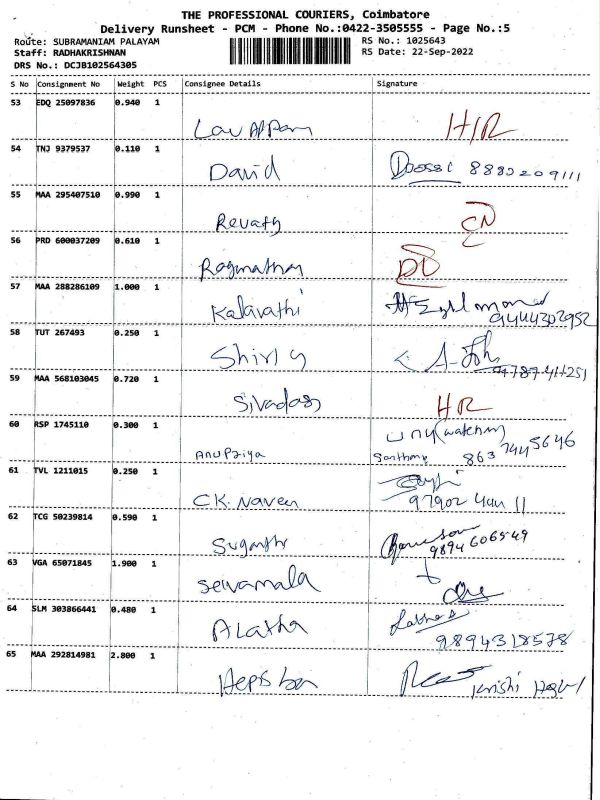 THE PROFESSIONAL COURIERS, Coimbatore
Delivery Runsheet - PCM - Phone No.:0422-3505555 - Page No.:5
Route: SUBRAMANIAM PALAYAM RS No.: 1025643
Staff: RADHAKRISHNAN RS Date: 22-Sep-2022
DRS No.: DCJB102564305
S No Consignment No Weight PCS Consignee Details Signature
53 EDQ 25097836 0.940 1
H/R
54 TNJ 9379537 0.110 1
David 8883209111
55 MAA 295407510 0.990 1
Revathy
56 PRD 600037209 0.610 1
Ragunathan DD
57 MAA 288286109 1.000 1
Kalaivathi 9444302952
58 TUT 267493 0.250 1
Shirly
59 MAA 568103045 0.720 1
Sivadass HR
60 RSP 1745110 0.300 1
Anupriya 8637445646
61 TVL 1211015 0.250 1
C.K. Naveen
62 TCG 50239814 0.590 1
Suganthi 9894606549
63 VGA 65071845 1.900 1
Selvamala
64 SLM 303866441 0.480 1
Alatha 9894318578
65 MAA 292814981 2.800 1
Krishi